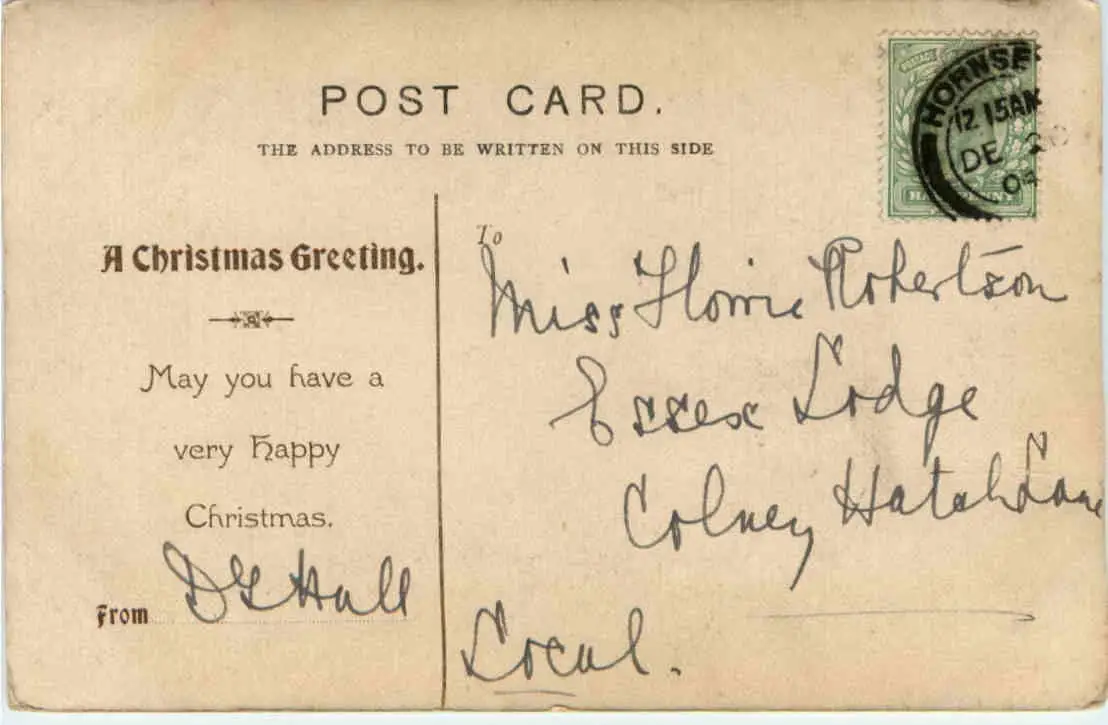 POST CARD.
THE ADDRESS TO BE WRITTEN ON THIS SIDE
HORNSE
12.15AM
DE 20
POSTAGE
A Christmas Greeting.
May you have a
very Happy
Christmas.
From D G Hall
To
Miss Florrie Robertson
Essex Lodge
Colney Hatch Lane
Local.